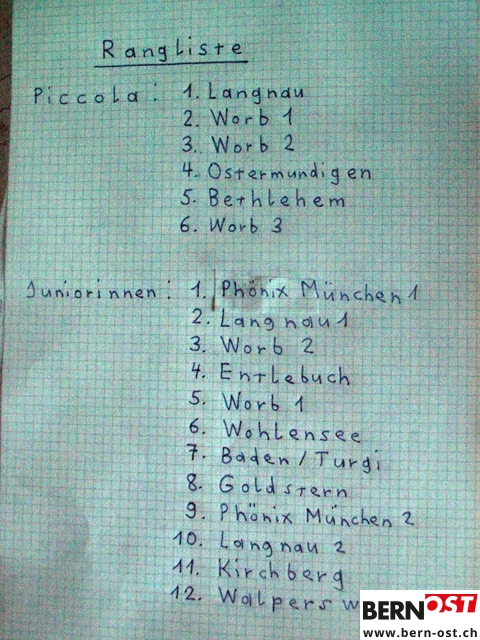 Rangliste
Piccola: 1. Langnau
2. Worb 1
3. Worb 2
4. Ostermundigen
5. Bethlehem
6. Worb 3
Juniorinnen: 1. Phönix München 1
2. Langnau 1
3. Worb 2
4. Entlebuch
5. Worb 1
6. Wohlensee
7. Baden / Turgi
8. Goldstern
9. Phönix München 2
10. Langnau 2
11. Kirchberg
12. Walpersw
BERNOST
www.bern-ost.ch